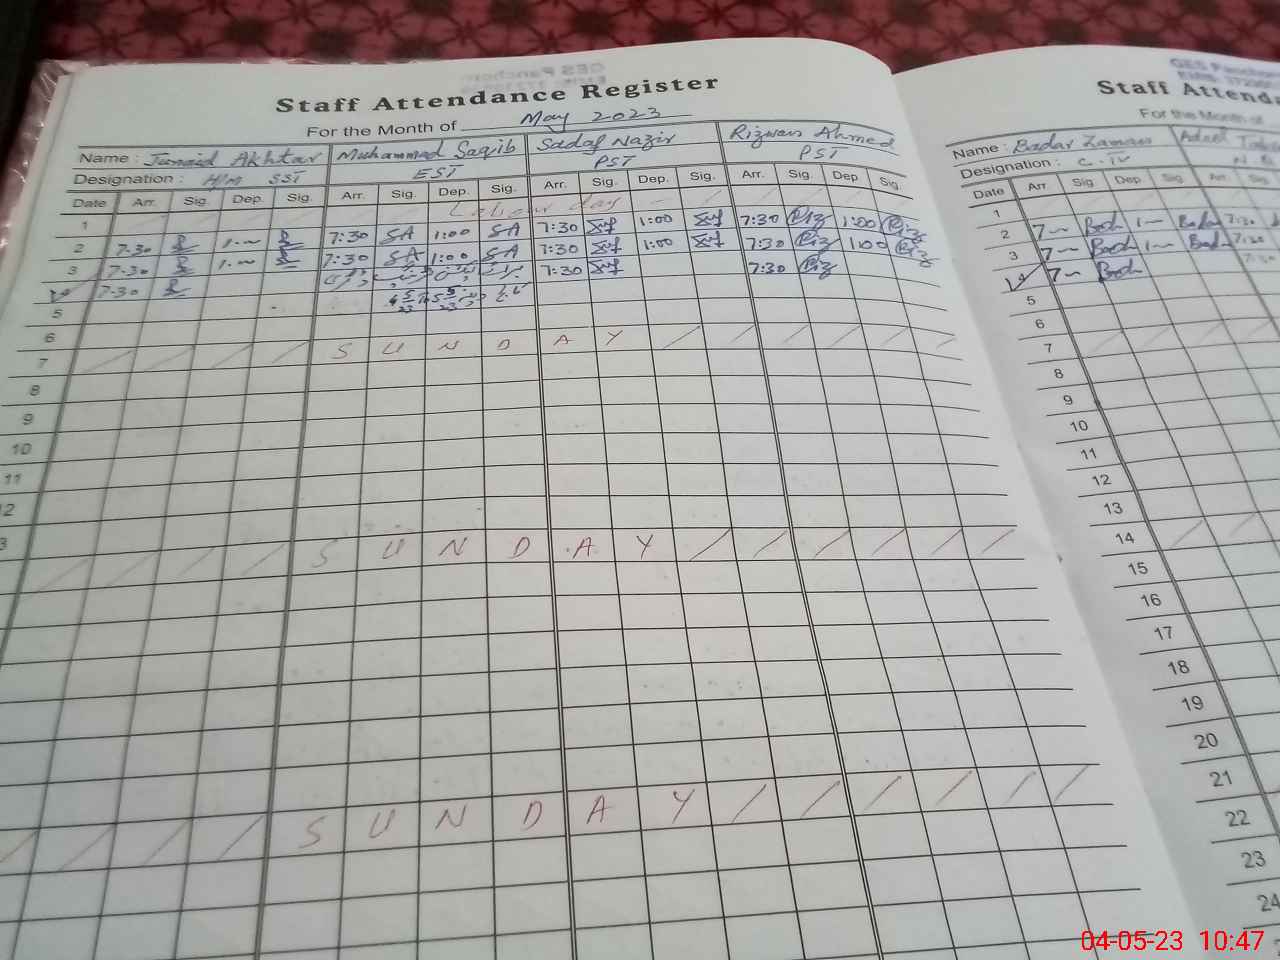 GES Panchore
Staff Attendance Register
For the Month of May 2023
Name : Junaid Akhtar Muhammad Saqib Sadaf Nazir Rizwan Ahmed
Designation : H/M SST EST PST PST
Date Arr. Sig. Dep. Sig. Arr. Sig. Dep. Sig. Arr. Sig. Dep. Sig. Arr. Sig. Dep Sig.
1 Labour day
2 7:30 1:00 7:30 SA 1:00 SA 7:30 1:00 7:30 Riz 1:00 Riz
3 7:30 1:00 7:30 SA 1:00 SA 7:30 1:00 7:30 Riz 1:00 Riz
7:30 7:30 7:30 Riz
5
6
7 S U N D A Y
8
9
10
11
12
S U N D A Y
S U N D A Y
GES Panchore
Staff Attenda
For the Month of
Name : Badar Zaman Adeel
Designation : C-IV N
Date Arr. Sig Dep Sig Arr. Sig
1
2 7 Badr 1 Badr 7:30
3 7 Badr 1 Badr 7:30
4 7 Badr 7:30
5
6
7
8
9
10
11
12
13
14
15
16
17
18
19
20
21
22
23
24
04-05-23 10:47